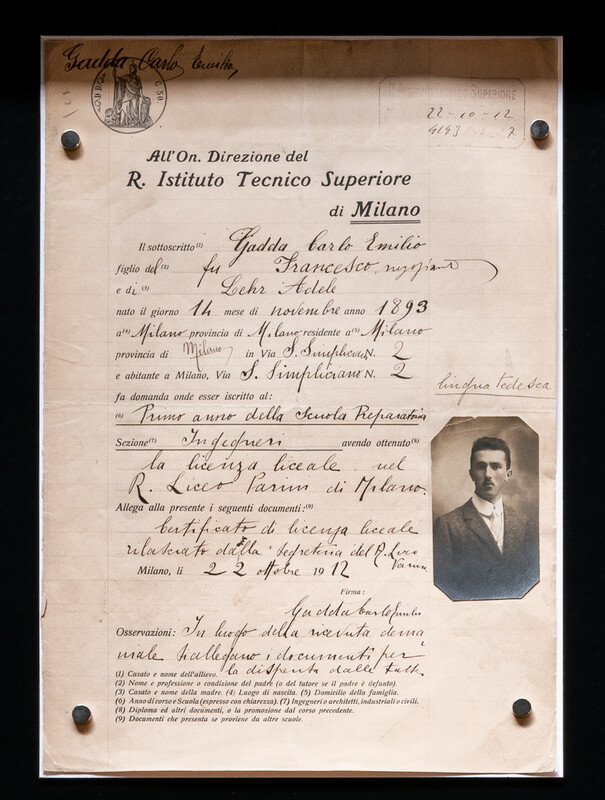 Gadda Carlo Emilio
C. 50
SUPERIORE
22-10-12
4193
All'On. Direzione del
R. Istituto Tecnico Superiore
di Milano
Il sottoscritto (1) Gadda Carlo Emilio
figlio del (2) fu Francesco, negoziante
e di (3) Lehr Adele
nato il giorno 14 mese di novembre anno 1893
a (4) Milano provincia di Milano residente a (5) Milano
provincia di Milano in Via S. Simpliciano N. 2
e abitante a Milano, Via S. Simpliciano N. 2
fa domanda onde esser iscritto al:
lingua tedesca
(6) Primo anno della Scuola Preparatoria
Sezione (7) Ingegneri avendo ottenuto (8)
la licenza liceale nel
R. Liceo Parini di Milano.
Allega alla presente i seguenti documenti: (9)
Certificato di licenza liceale
rilasciato dalla Segreteria del R. Liceo
Parini
Milano, li 22 ottobre 1912
Firma:
Gadda Carlo Emilio
Osservazioni: In luogo della ricevuta dema
niale s'allegano i documenti per
la dispensa dalle tasse
(1) Casato e nome dell'allievo.
(2) Nome e professione o condizione del padre (o del tutore se il padre è defunto).
(3) Casato e nome della madre. (4) Luogo di nascita. (5) Domicilio della famiglia.
(6) Anno di corso e Scuola (espresso con chiarezza). (7) Ingegneri o architetti, industriali o civili.
(8) Diploma ed altri documenti, o la promozione dal corso precedente.
(9) Documenti che presenta se proviene da altre scuole.